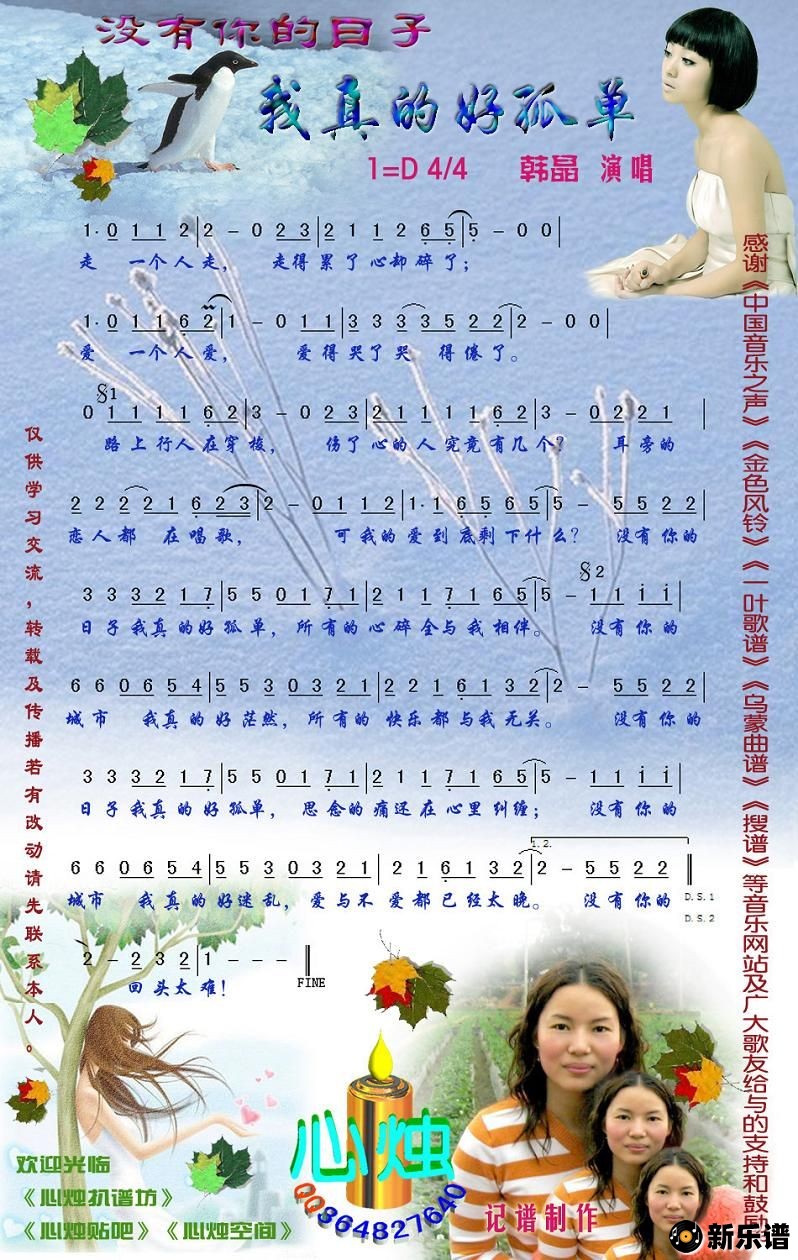 没有你的日子
我真的好孤单
1=D 4/4 韩晶 演唱
1· 0 1 1 2 | 2 - 0 2 3 | 2 1 1 2 6 5 | 5 - 0 0 |
走 一个人走， 走得累了心却碎了；
1· 0 1 1 6 2 | 1 - 0 1 1 | 3 3 3 3 5 2 2 | 2 - 0 0 |
爱 一个人爱， 爱得哭了哭 得倦了。
§1
0 1 1 1 1 6 2 | 3 - 0 2 3 | 2 1 1 1 1 6 2 | 3 - 0 2 2 1 |
路上行人在穿梭， 伤了心的人究竟有几个？ 耳旁的
2 2 2 2 1 6 2 2 3 | 2 - 0 1 1 2 | 1· 1 6 5 6 5 | 5 - 5 5 2 2 |
恋人都 在唱歌， 可我的爱到底剩下什么？ 没有你的
§2
3 3 3 2 1 7 | 5 5 0 1 7 1 | 2 1 1 7 1 6 5 | 5 - 1 1 i i |
日子我真的好孤单，所有的心碎全与我相伴。 没有你的
6 6 0 6 5 4 | 5 5 3 0 3 2 1 | 2 2 1 6 1 3 2 | 2 - 5 5 2 2 |
城市 我真的好茫然，所有的快乐都与我无关。 没有你的
3 3 3 2 1 7 | 5 5 0 1 7 1 | 2 1 1 7 1 6 5 | 5 - 1 1 i i |
日子我真的好孤单， 思念的痛还在心里纠缠； 没有你的
1. 2.
6 6 0 6 5 4 | 5 5 3 0 3 2 1 | 2 1 6 1 3 2 | 2 - 5 5 2 2 ‖
城市 我真的好迷乱，爱与不爱都已经太晚。 没有你的
D.S.1
D.S.2
2 - 2 3 2 | 1 - - - ‖
回头太难！
FINE
仅供学习交流，转载及传播若有改动请先联系本人。
感谢《中国音乐之声》《金色风铃》《一叶歌谱》《乌蒙曲谱》《搜谱》等音乐网站及广大歌友给与的支持和鼓
欢迎光临
《心烛扒谱坊》
《心烛贴吧》《心烛空间》
心烛
QQ364827640
记谱制作
新乐谱